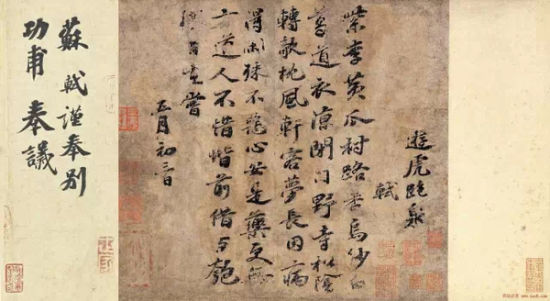 遊虎跑泉
軾
紫李黃瓜村路香烏紗白
葛道衣涼閉門野寺松陰
轉欹枕風軒客夢長因病
得閑殊不惡心安是藥更無
方道人不惜階前借与匏
樽自在嘗
五月初三日
蘇軾謹奉別
功甫奉議